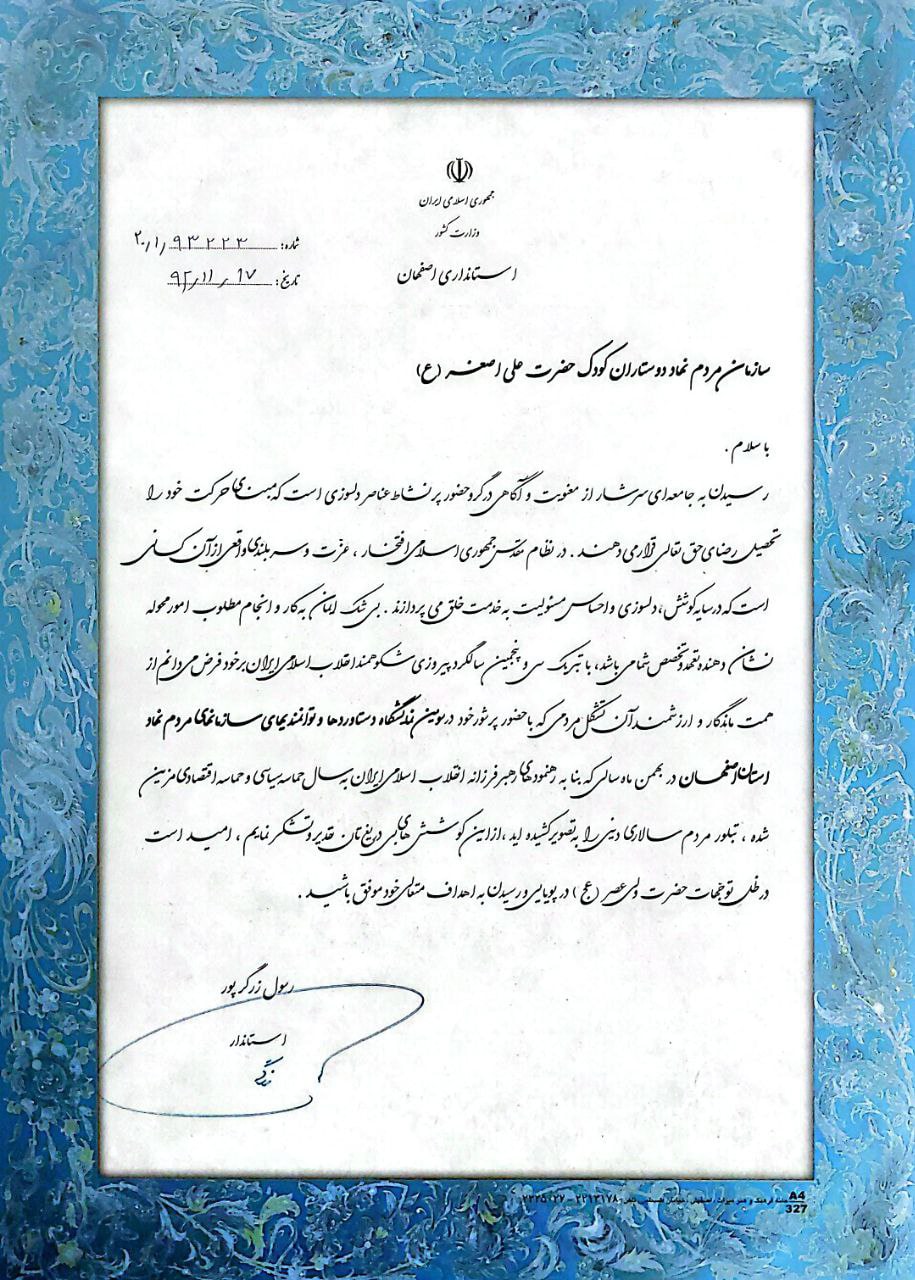 جمهوری اسلامی ایران
وزارت کشور
استانداری اصفهان
شماره: ۲۰/۱/۹۳۲۲۳
تاریخ: ۹۲/۱۱/۱۷
سازمان مردم نهاد دوستاران کودک حضرت علی اصغر (ع)
با سلام .
رسیدن به جامعه‌ای سرشار از معنویت و آگاهی در گرو حضور پر نشاط عناصر دلسوزی است که مبنای حرکت خود را
تحصیل رضای حق تعالی قرار می دهند . در نظام مقدس جمهوری اسلامی افتخار ، عزت و سر بلندی واقعی از آن کسانی
است که در سایه کوشش ، دلسوزی و احساس مسئولیت به خدمت خلق می پردازند . بی شک ایمان به کار و انجام مطلوب امور محوله
نشان دهنده تعهد و تخصص شما می باشد، با تبریک سی و پنجمین سالگرد پیروزی شکوهمند انقلاب اسلامی ایران بر خود فرض می دانم از
همت ماندگار و ارزشمند آن تشکل مردمی که با حضور پرشور خود در سومین نمایشگاه دستاوردها و توانمندیهای سازمانهای مردم نهاد
استان اصفهان در بهمن ماه سالی که بنا به رهنمودهای رهبر فرزانه انقلاب اسلامی ایران به سال حماسه سیاسی و حماسه اقتصادی مزین
شده ، تبلور مردم سالاری دینی را به تصویر کشیده اید ، از این کوشش های بی دریغ تان تقدیر و تشکر نمایم ، امید است
در ظل توجهات حضرت ولی عصر (عج) در پویایی و رسیدن به اهداف متعالی خود موفق باشید .
رسول زرگرپور
استاندار
A4
327